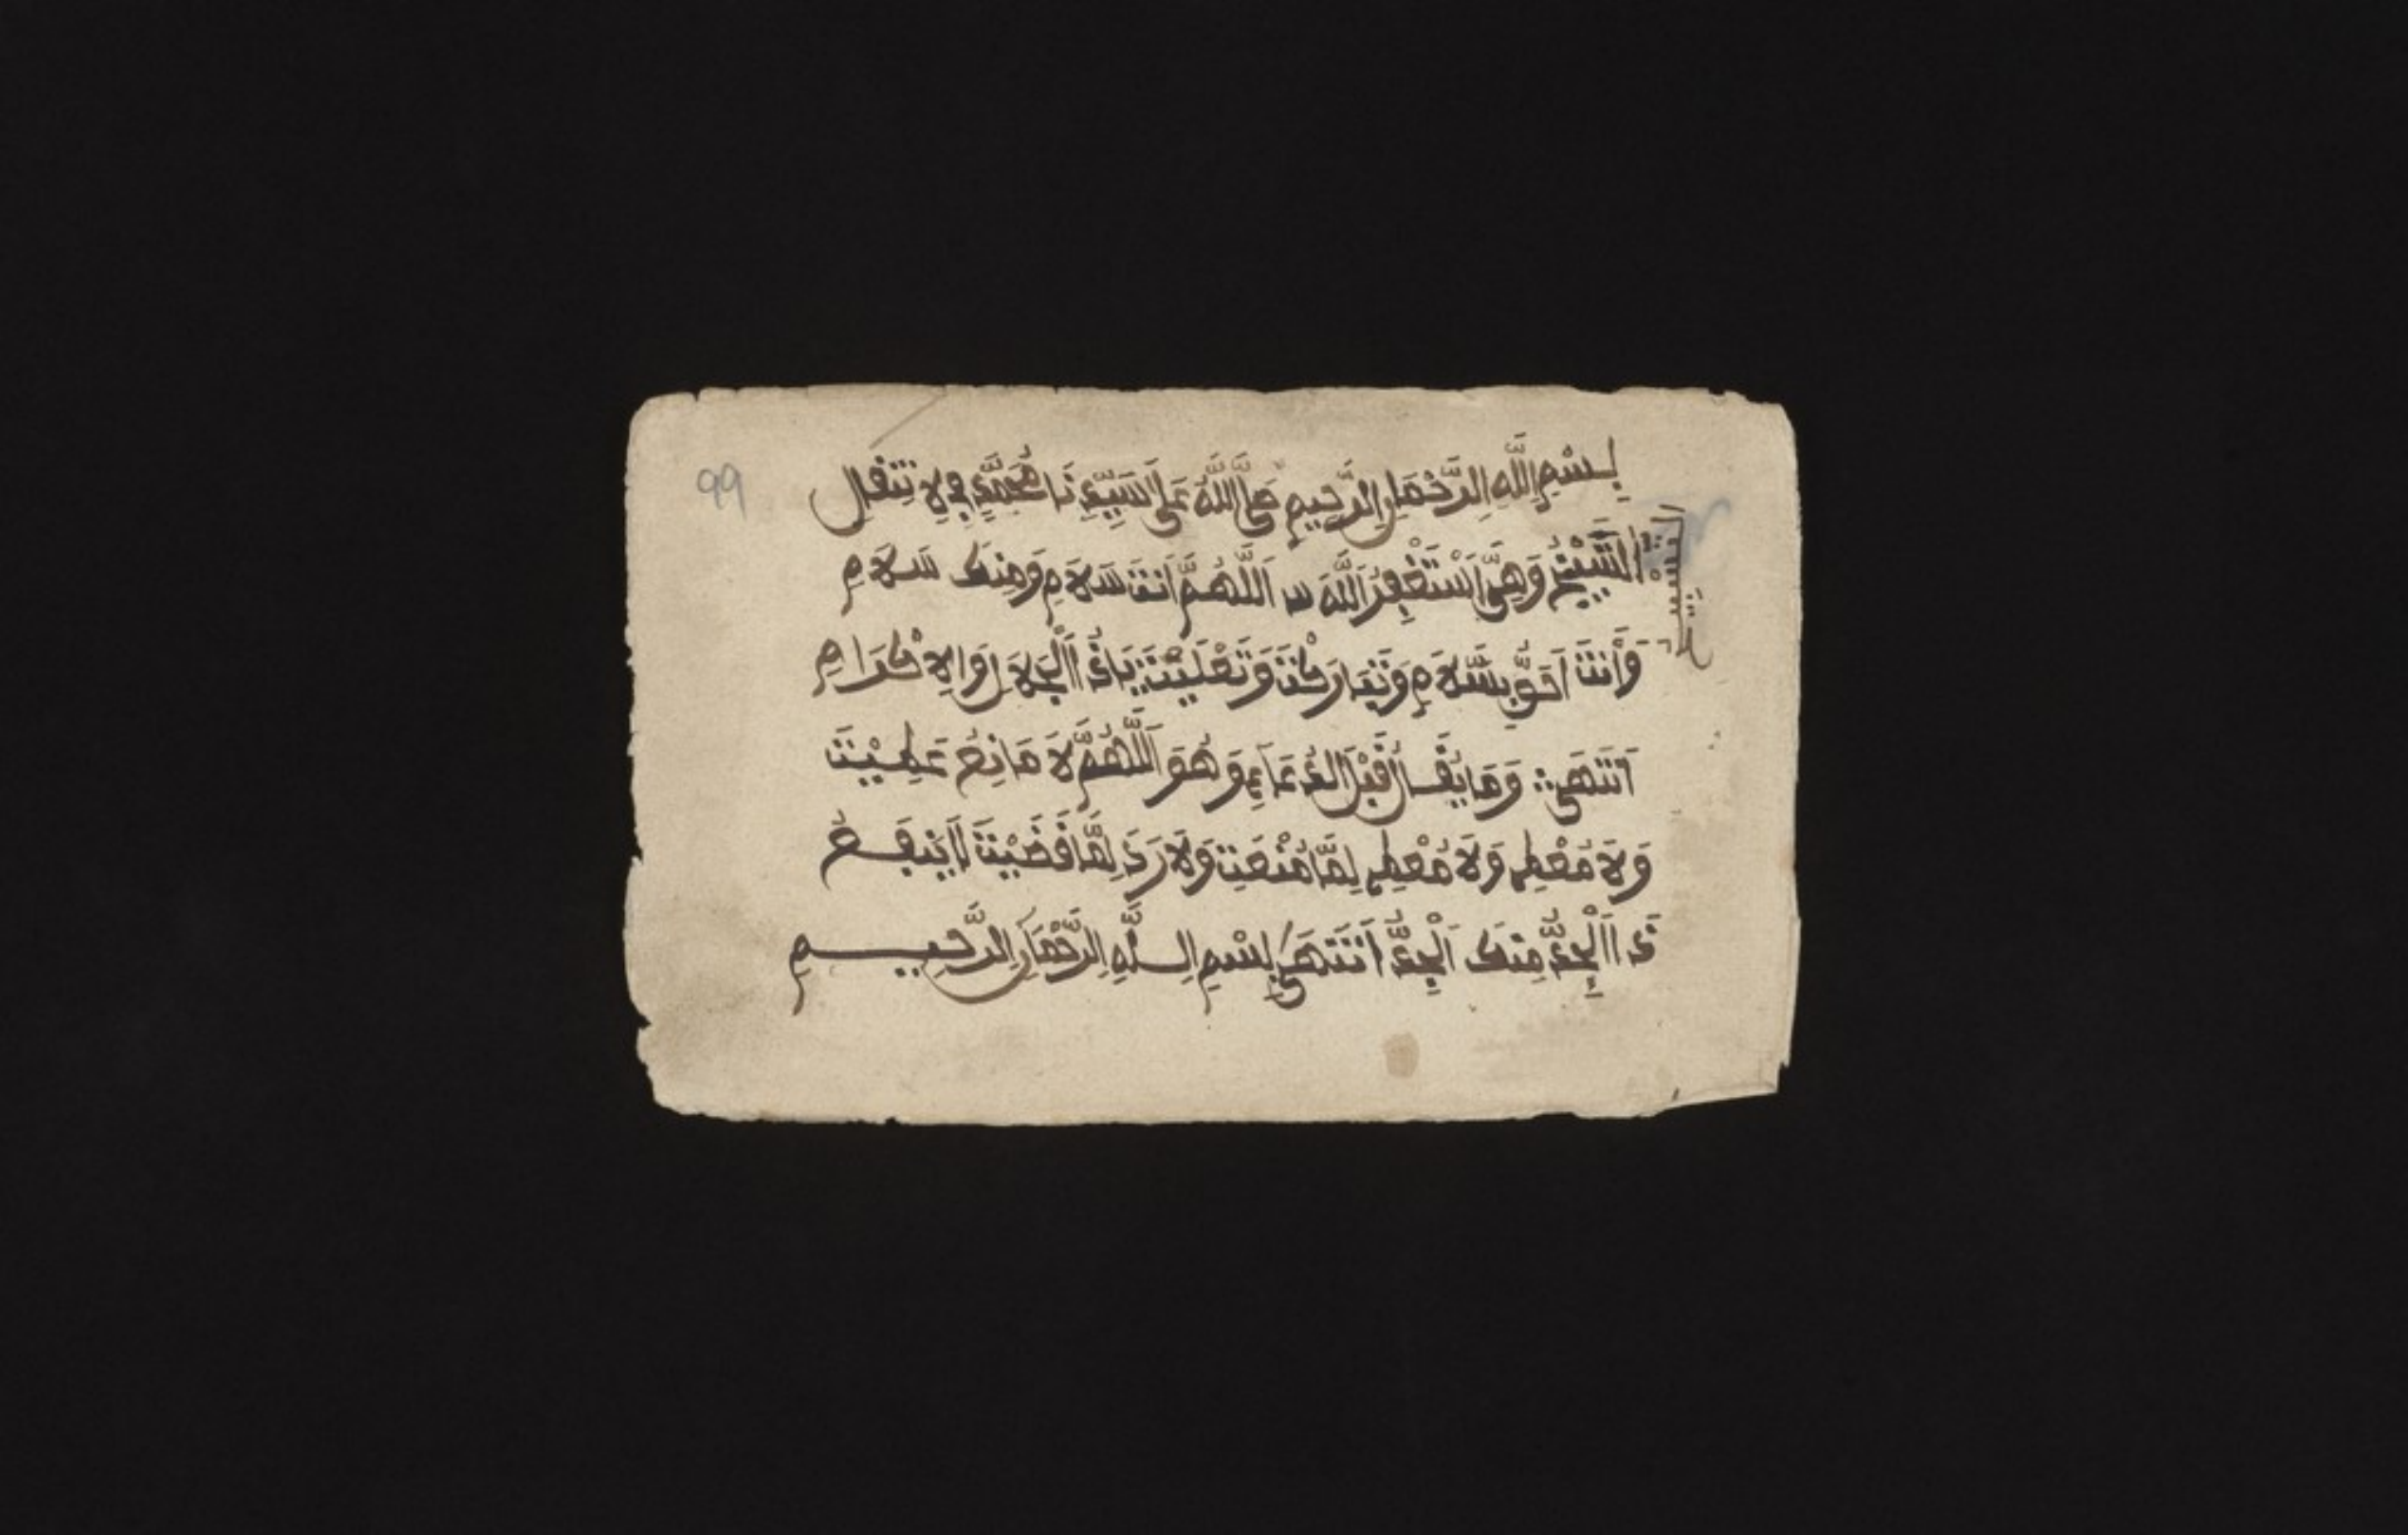 99
بِسْمِ اللَّهِ الرَّحْمَٰنِ الرَّحِيمِ صَلَّى اللَّهُ عَلَى سَيِّدِنَا مُحَمَّدٍ
وَهِيَ اَسْتَغْفِرُ اللَّهَ اَللَّهُمَّ اَنْتَ سَلَامِ وَمِنْكَ سَلَامِ
وَأَنْتَ اَحَقُّ بِسَّلَامِ وَتَبَارَكْتَ وَتَعْلَيْتَ يَاذَ اَلْجَلَالِ وَالِاكْرَامِ
اَنْتَهَى وَمَا يُقَالُ قَبْلَ الدُعَاءِ وَهُوَ اَللَّهُمَّ لَا مَانِعُ عَطَيْتَ
وَلَا مُعْطِي وَلَا مُعْطِي لِمَّا مُنْعَتَ وَلَا رَدَ لِمَّا قَضَيْتَ لَا يَنْفَعُ
ذَ اَلْجِدُّ مِنْكَ اَلْجِدُّ اَنْتَهَى بِسْمِ اللَّهِ الرَّحْمَٰنِ الرَّحِيمِ